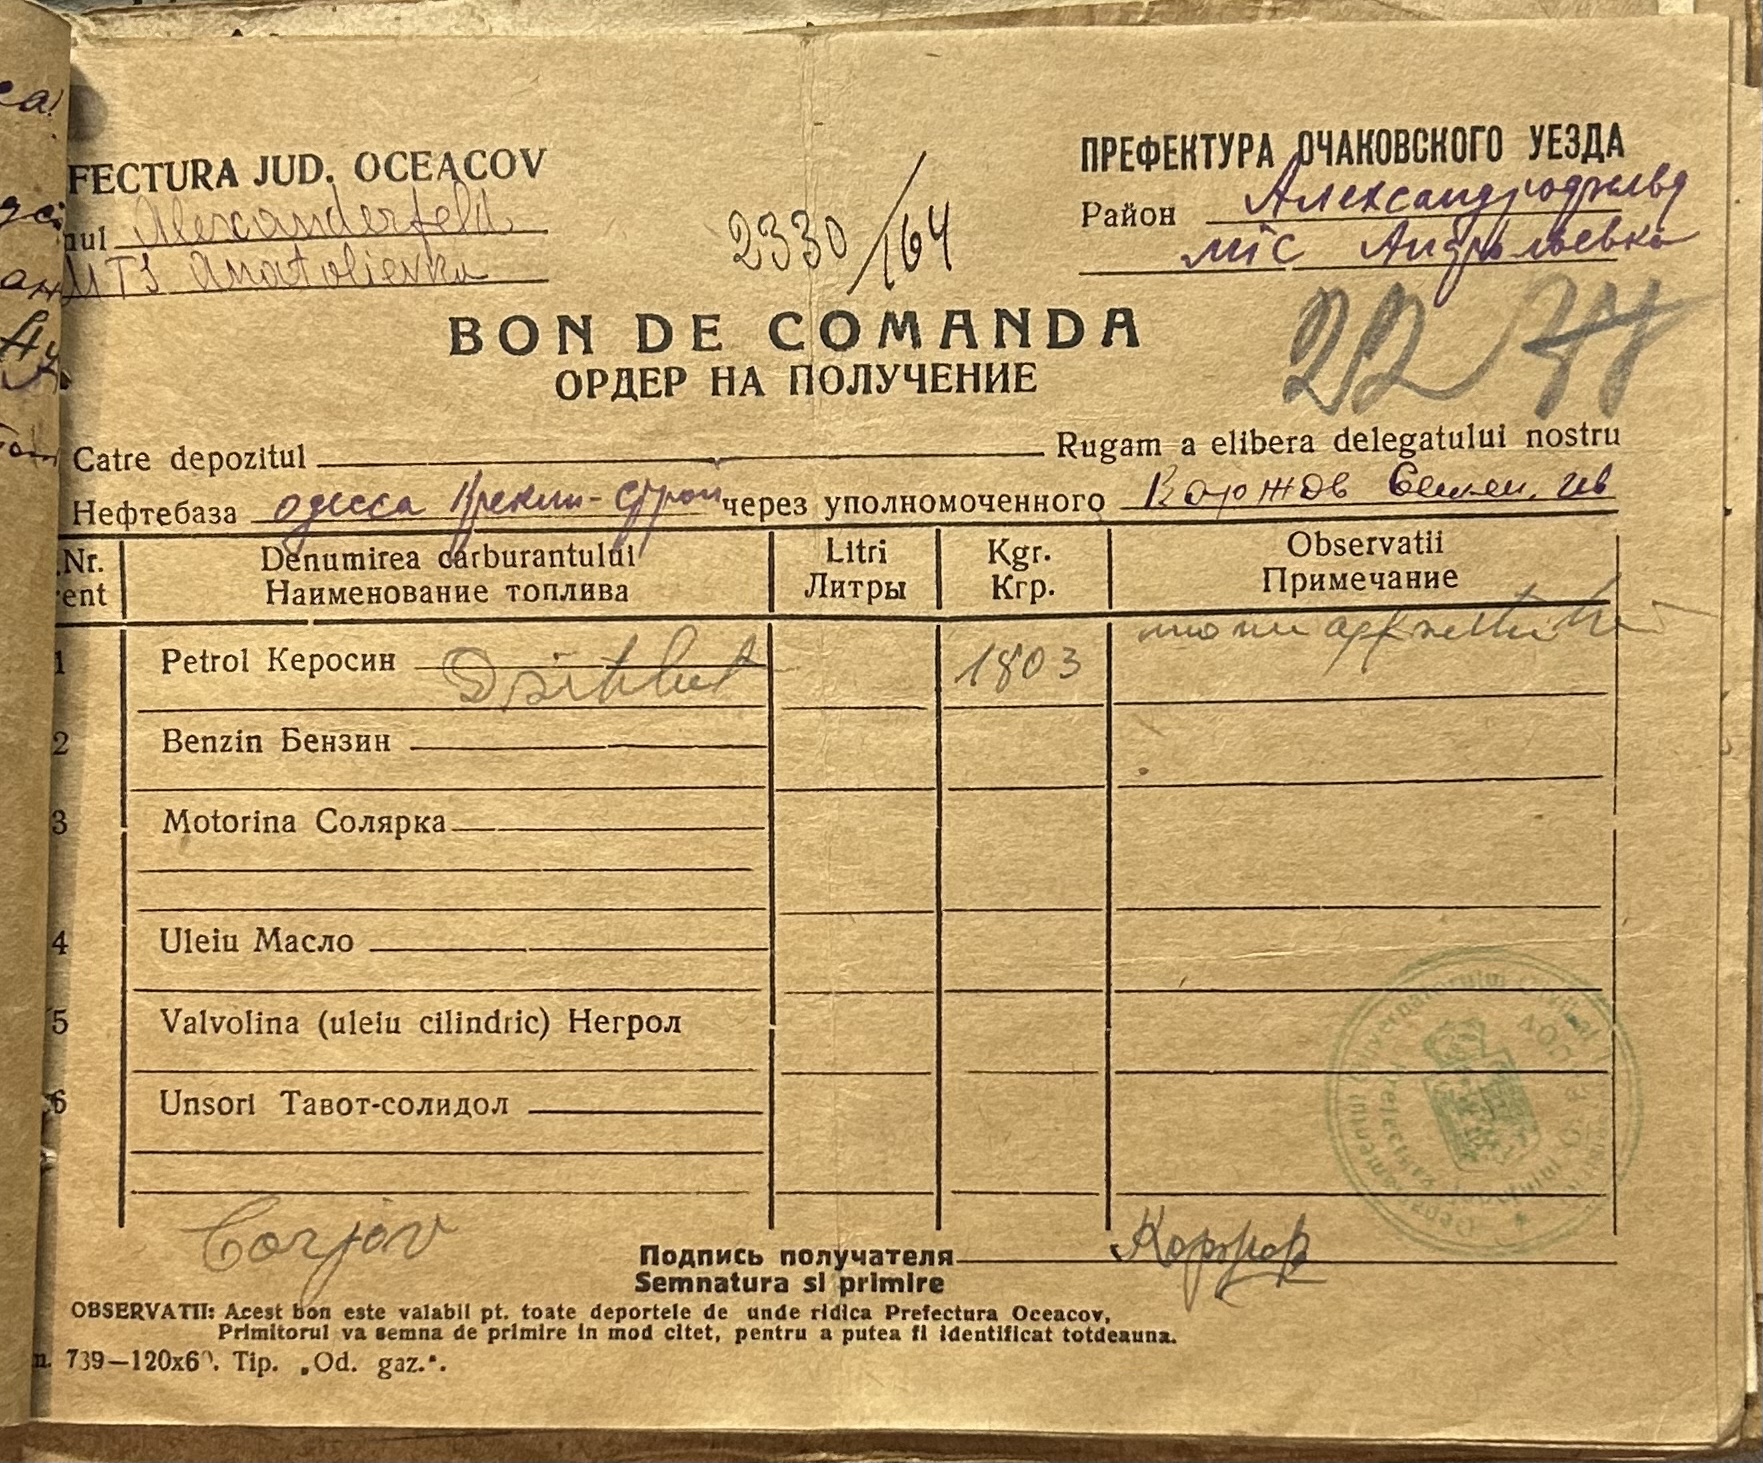 FECTURA JUD. OCEACOV
Alexanderfeld
MTS Anatolievka
2330/164
ПРЕФЕКТУРА ОЧАКОВСКОГО УЕЗДА
Район Александрофельд
мтс
22
BON DE COMANDA
ОРДЕР НА ПОЛУЧЕНИЕ
Catre depozitul Rugam a elibera delegatului nostru
Нефтебаза одесса через уполномоченного Коржов Семен. Ив
Nr. Denumirea carburantului Litri Kgr. Observatii
ent Наименование топлива Литры Кгр. Примечание
1 Petrol Керосин 1803
2 Benzin Бензин
3 Motorina Солярка
4 Uleiu Масло
5 Valvolina (uleiu cilindric) Негрол
6 Unsori Тавот-солидол
Corjov
Подпись получателя Коржов
Semnatura si primire
OBSERVATII: Acest bon este valabil pt. toate deportele de unde ridica Prefectura Oceacov,
Primitorul va semna de primire in mod citet, pentru a putea fi identificat totdeauna.
739—120x6 Tip. „Od. gaz.“.